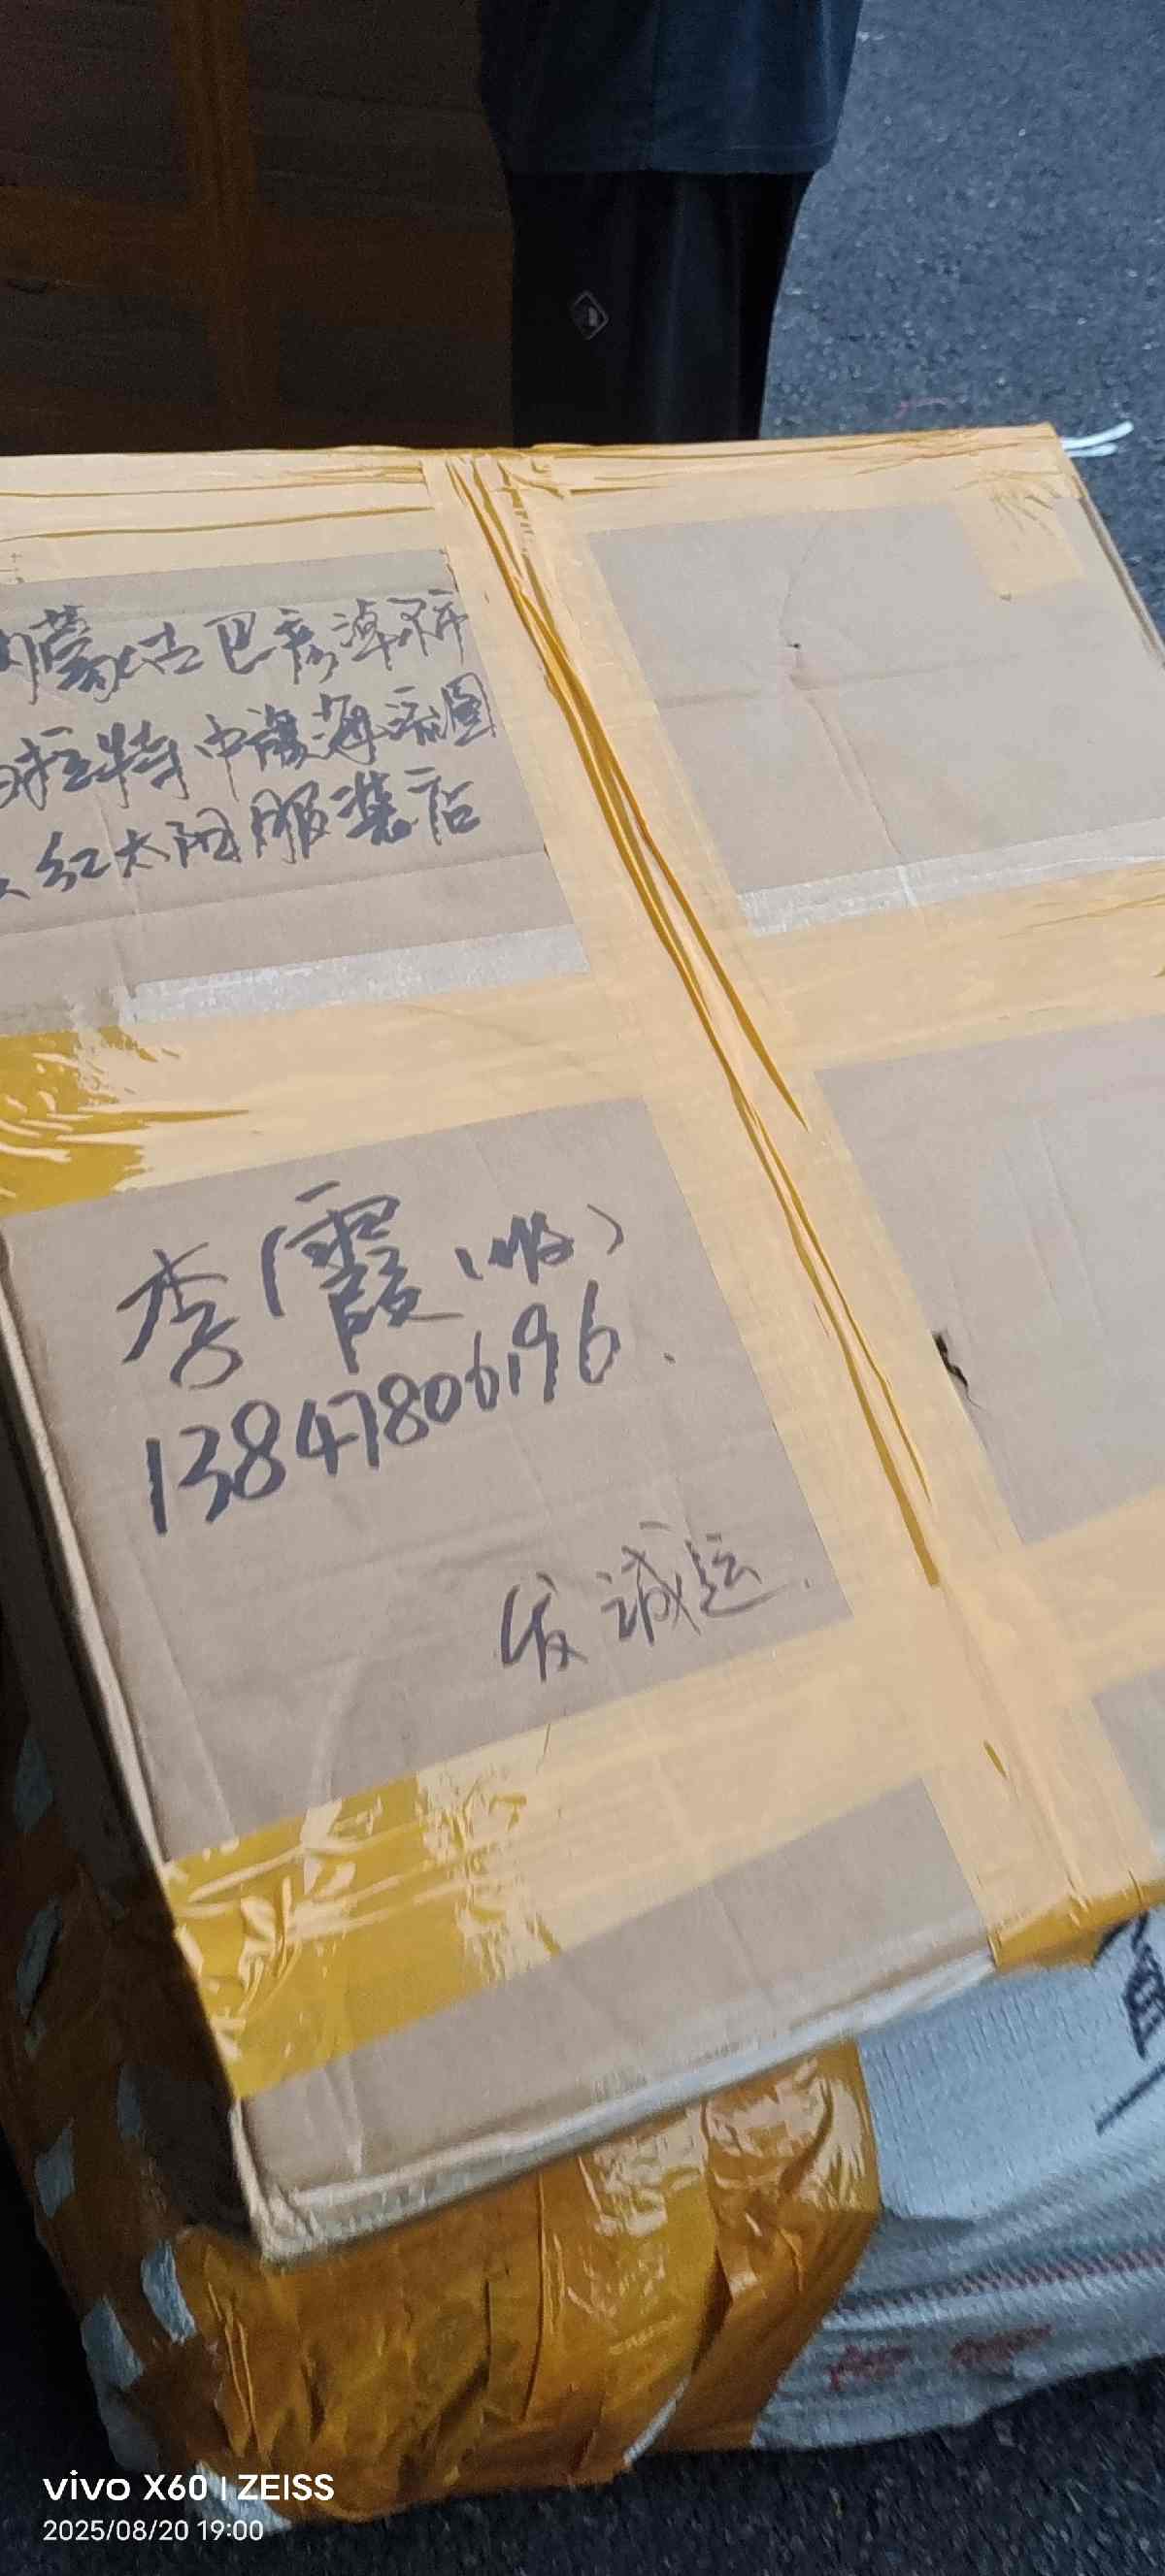 内蒙古巴彦淖尔市
乌拉特中旗海流图
红太阳服装店
李霞(收)
13847806196.
发诚运.
vivo X60 | ZEISS
2025/08/20 19:00